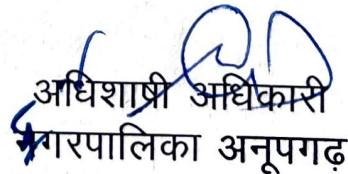 अधिशाषी अधिकारी
नगरपालिका अनूपगढ़